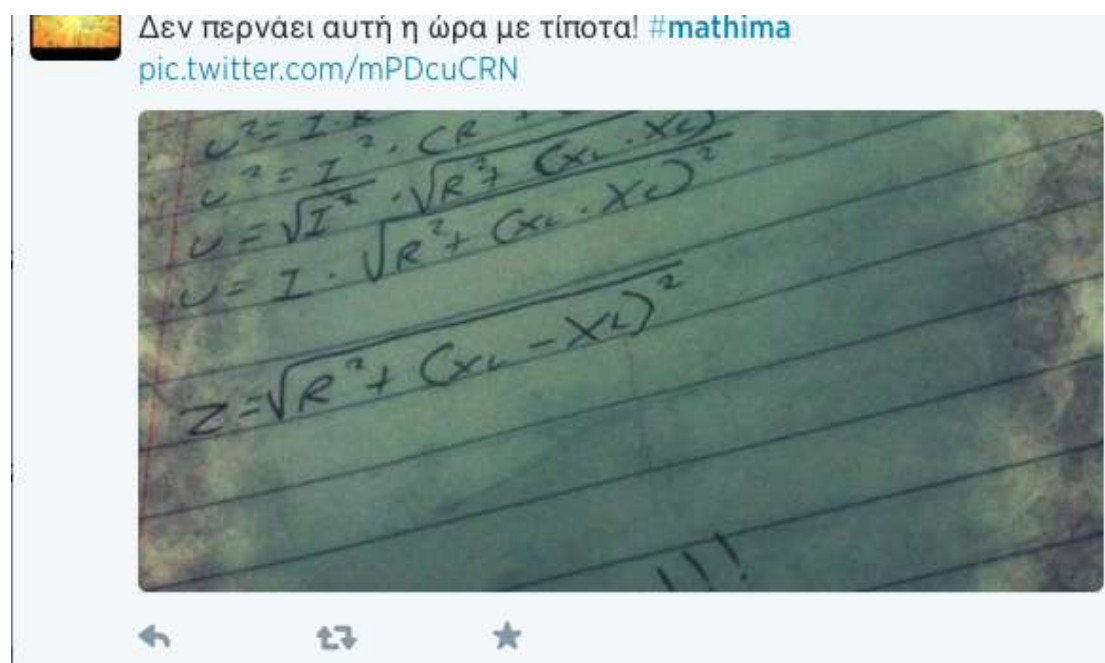 Δεν περνάει αυτή η ώρα με τίποτα! #mathima
pic.twitter.com/mPDcuCRN
U²= I R
U² = I² . (R +
U = √I² . √R²+ (XL . XL)
U = I . √R²+ (XL . XL)²
Z=√R²+ (XL - XL)²
!!!